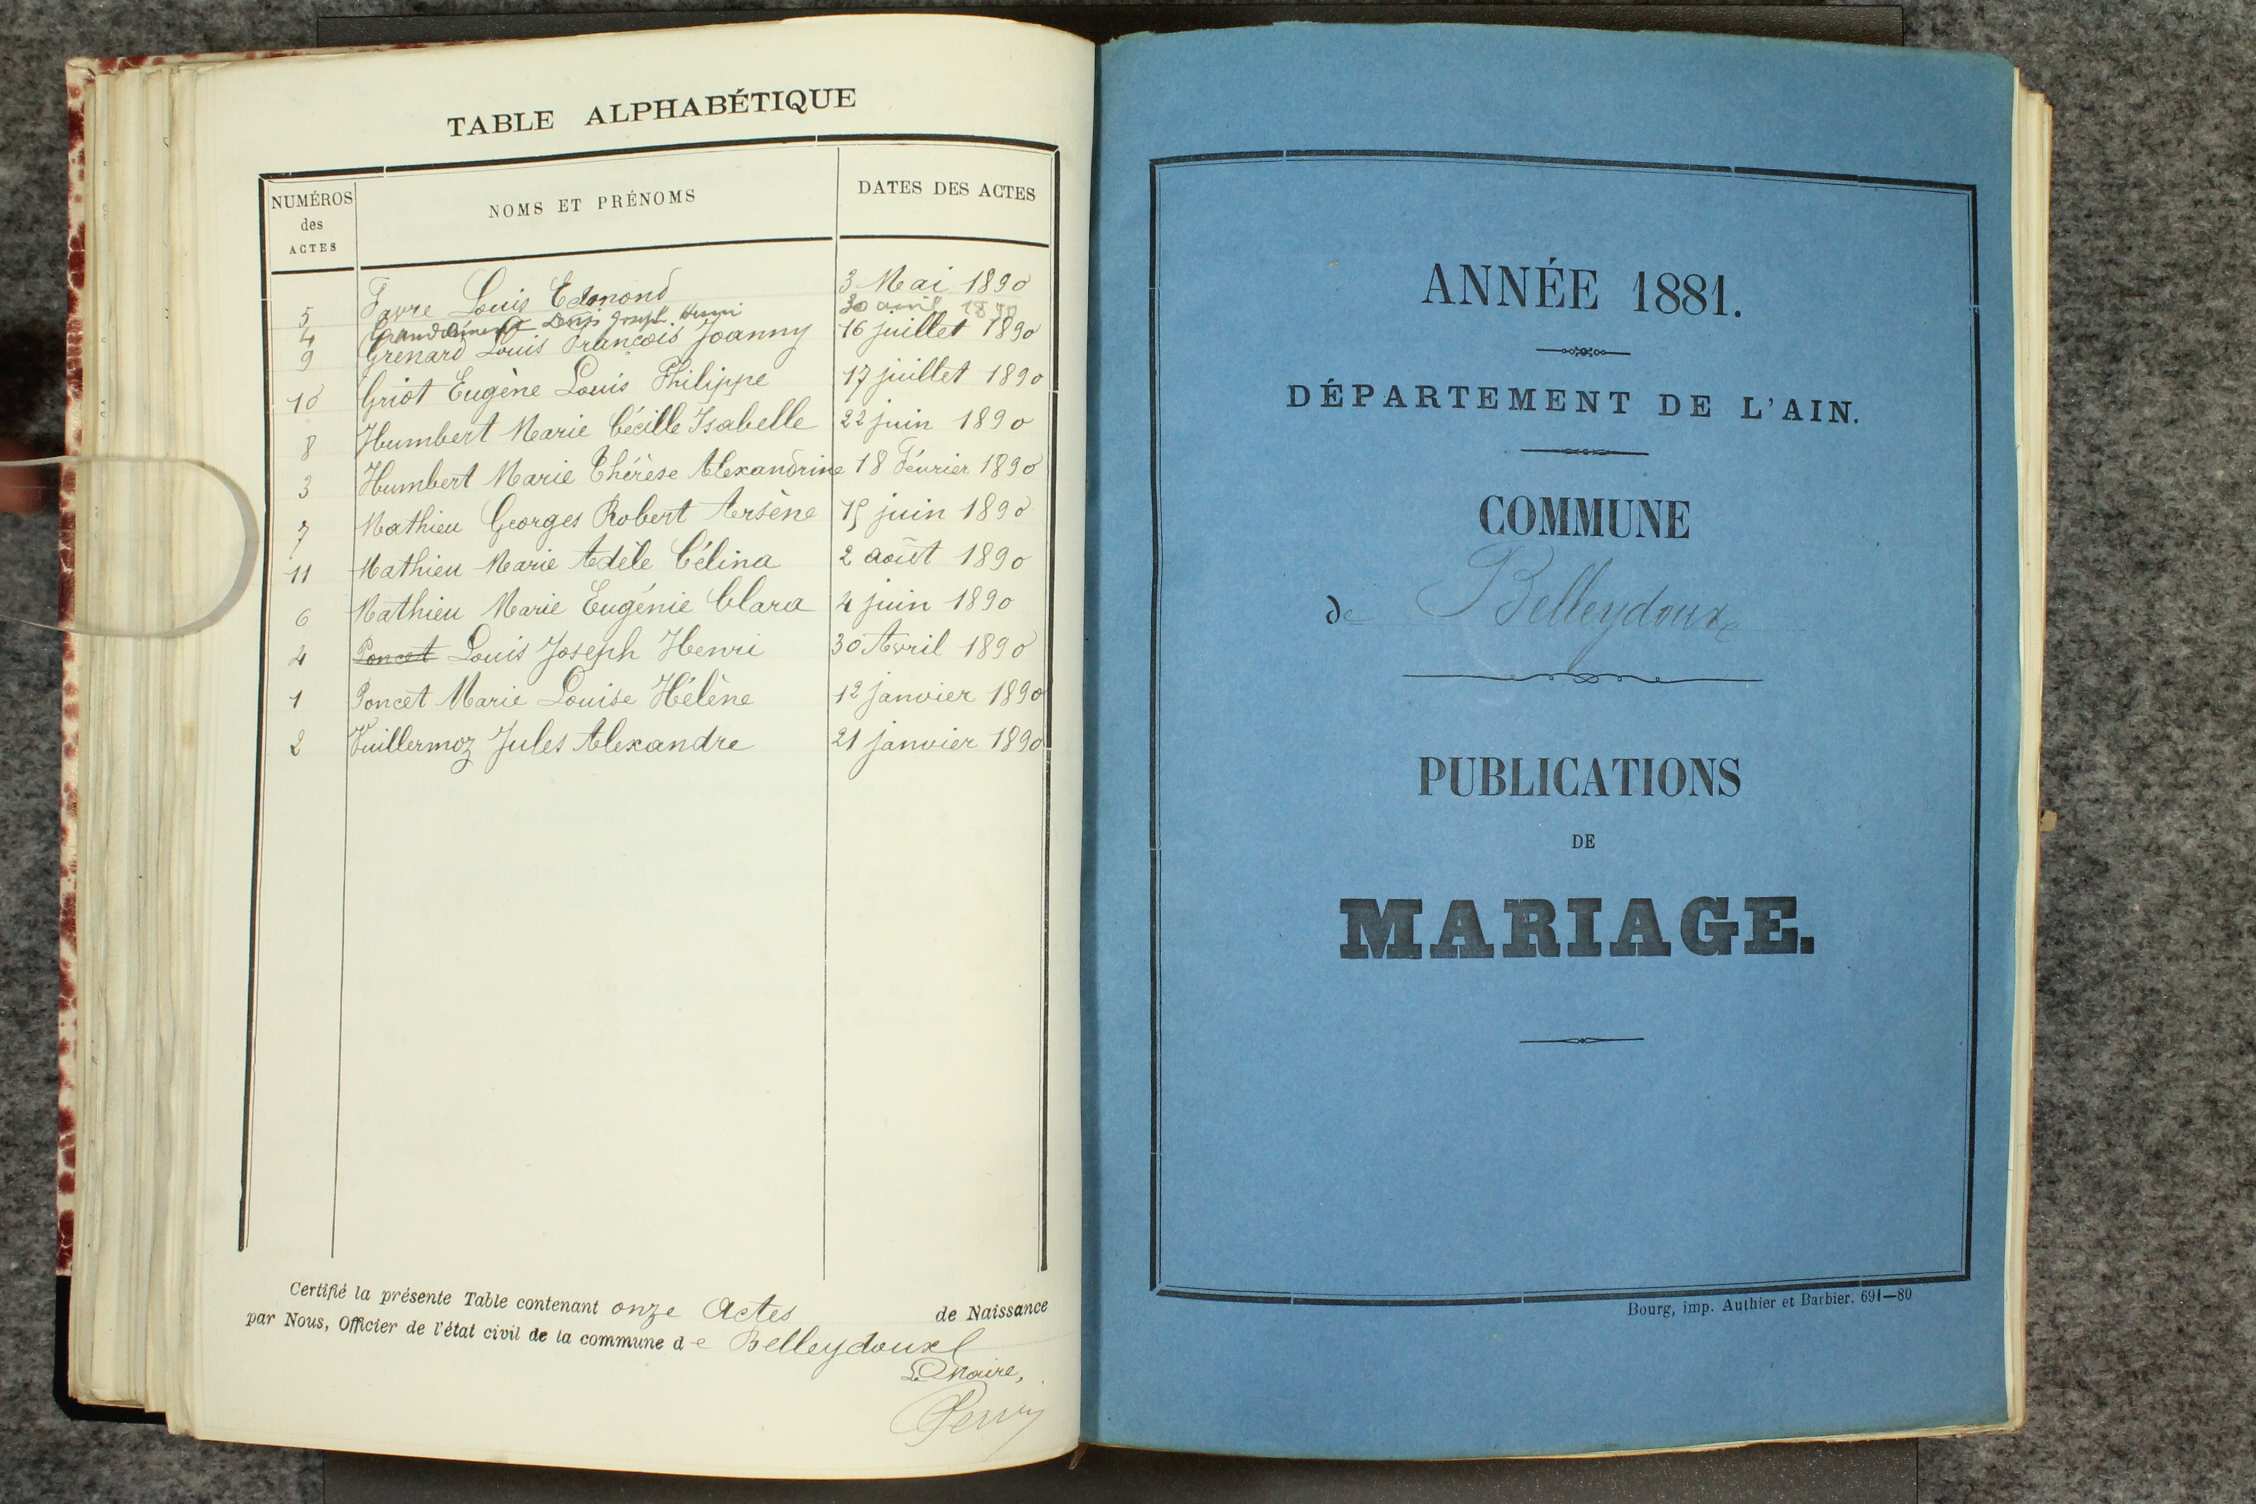 TABLE ALPHABÉTIQUE
NUMÉROS des ACTES NOMS ET PRÉNOMS DATES DES ACTES
5 Favre Louis Edmond 3 Mai 1890
4 Louis Joseph Henri 30 avril 1890
9 Grenard Louis François Joanny 16 juillet 1890
10 Griot Eugène Louis Philippe 17 juillet 1890
8 Humbert Marie Cécille Isabelle 22 juin 1890
3 Humbert Marie Thérèse Alexandrine 18 Février 1890
7 Mathieu Georges Robert Arsène 15 juin 1890
11 Mathieu Marie Adèle Célina 2 août 1890
6 Mathieu Marie Eugénie Clara 4 juin 1890
4 Poncet Louis Joseph Henri 30 Avril 1890
1 Poncet Marie Louise Hélène 12 janvier 1890
2 Vuillermoz Jules Alexandre 21 janvier 1890
Certifié la présente Table contenant onze Actes de Naissance
par Nous, Officier de l'état civil de la commune de Belleydoux
Le Maire,
ANNÉE 1881.
DÉPARTEMENT DE L'AIN.
COMMUNE
de Belleydoux
PUBLICATIONS
DE
MARIAGE.
Bourg, imp. Authier et Barbier. 691—80